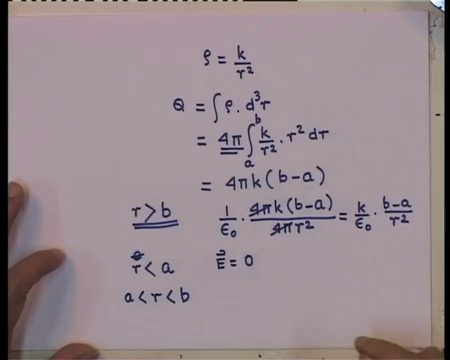 ρ = k/r²
Q = ∫ρ. d³r
= 4π ∫ₐᵇ k/r² . r² dr
= 4πk(b-a)
r > b 1/ε₀ . 4πk(b-a)/4πr² = k/ε₀ . b-a/r²
r < a E⃗ = 0
a < r < b